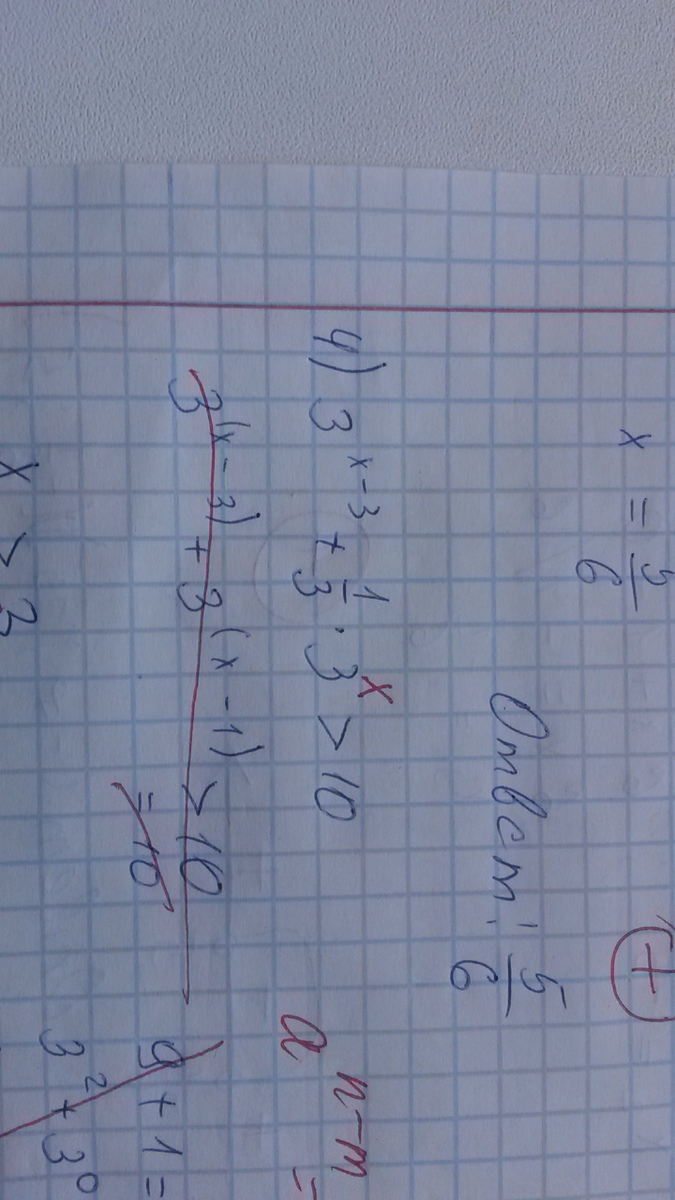 x = 5/6
Ответ: 5/6
+
4) 3^{x-3} + 1/3 · 3^x > 10
3^{(x-3)} + 3^{(x-1)} > 10
= 10
a^{n-m} =
9 + 1 =
3^2 + 3^0
x > 3